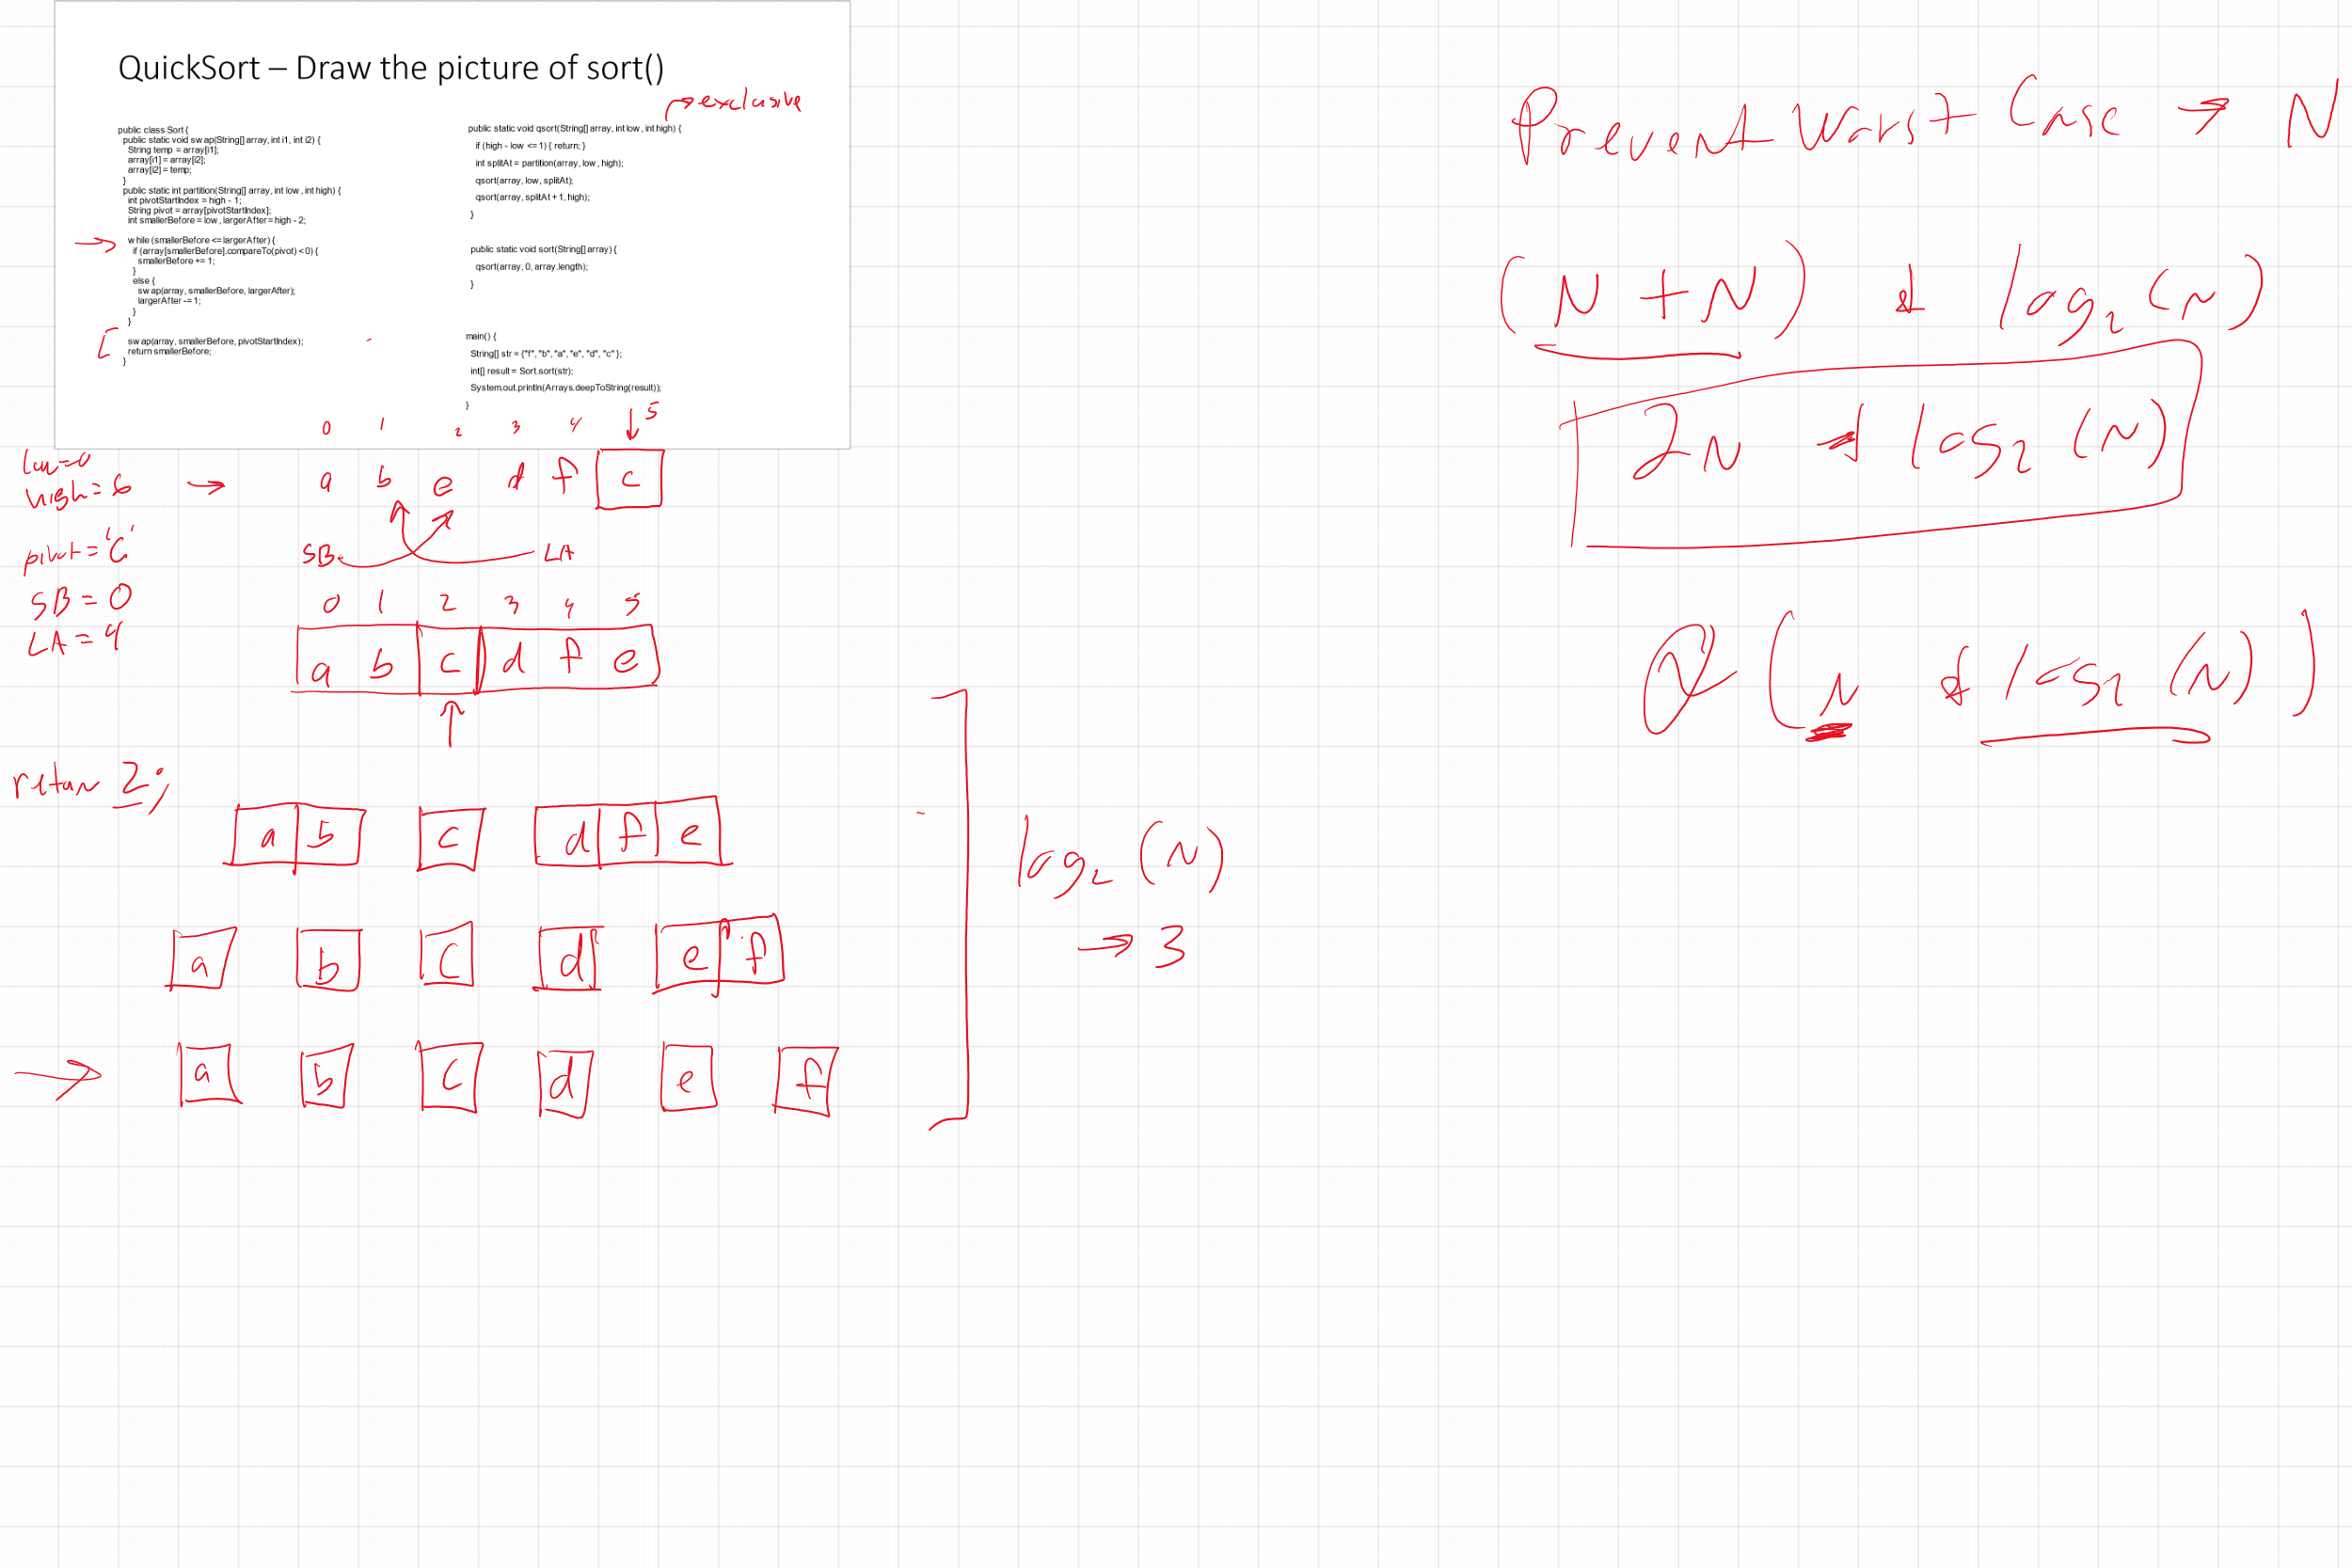 QuickSort – Draw the picture of sort()
exclusive
public class Sort {
public static void swap(String[] array, int i1, int i2) {
String temp = array[i1];
array[i1] = array[i2];
array[i2] = temp;
}
public static int partition(String[] array, int low, int high) {
int pivotStartIndex = high - 1;
String pivot = array[pivotStartIndex];
int smallerBefore = low, largerAfter = high - 2;
while (smallerBefore <= largerAfter) {
if (array[smallerBefore].compareTo(pivot) < 0) {
smallerBefore += 1;
}
else {
swap(array, smallerBefore, largerAfter);
largerAfter -= 1;
}
}
swap(array, smallerBefore, pivotStartIndex);
return smallerBefore;
}
public static void qsort(String[] array, int low, int high) {
if (high - low <= 1) { return; }
int splitAt = partition(array, low, high);
qsort(array, low, splitAt);
qsort(array, splitAt + 1, high);
}
public static void sort(String[] array) {
qsort(array, 0, array.length);
}
main() {
String[] str = {"f", "b", "a", "e", "d", "c" };
int[] result = Sort.sort(str);
System.out.println(Arrays.deepToString(result));
}
0 1 2 3 4 5
low=0
high=6
→ a b e d f c
pivot='C'
SB LA
SB=0
LA=4
0 1 2 3 4 5
a b c d f e
return 2;
a b c d f e
a b c d e f
→ a b c d e f
log2 (N)
→ 3
Prevent Worst Case → N
(N + N) * log2 (N)
2N * log2 (N)
O(N * log2 (N))